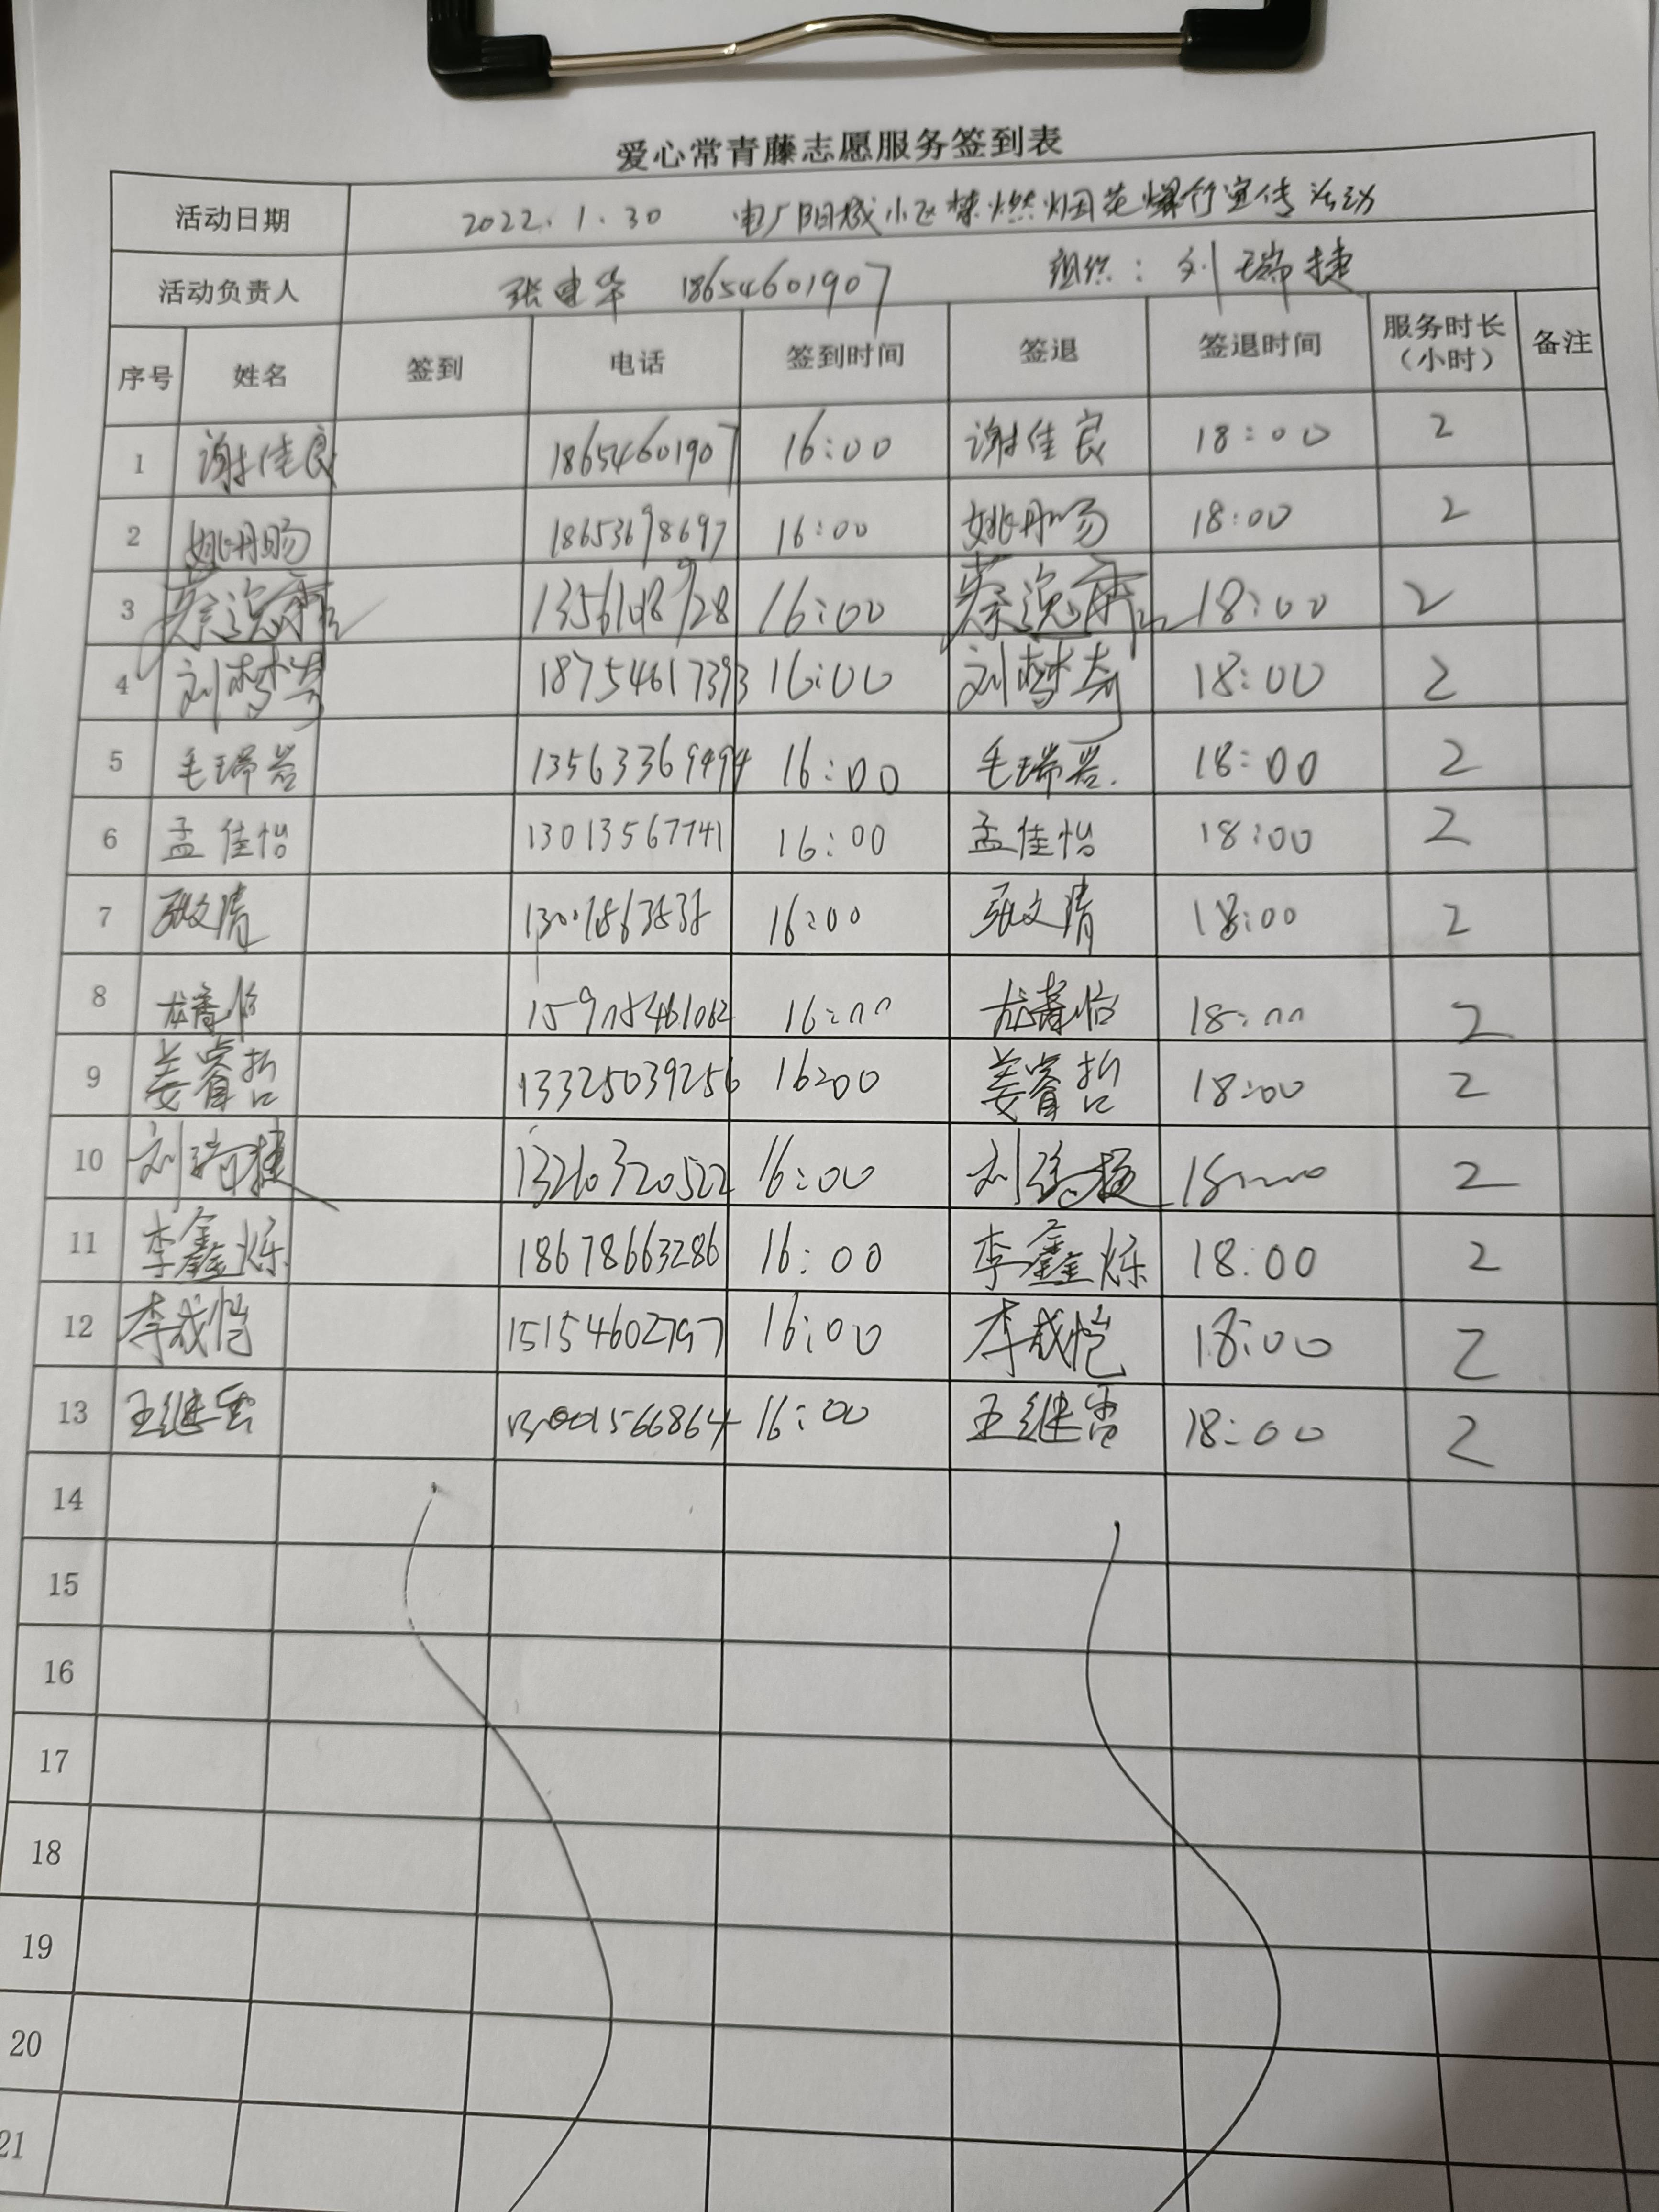 爱心常青藤志愿服务签到表
活动日期 2022.1.30 电厂阳城小区禁燃烟花爆竹宣传活动
活动负责人 张建华 18654601907 组织：刘瑞捷
序号 姓名 签到 电话 签到时间 签退 签退时间 服务时长（小时） 备注
1 谢佳良 18654601907 16:00 谢佳良 18:00 2
2 18653698697 16:00 18:00 2
3 蔡逸 16:00 蔡逸 18:00 2
4 刘梦奇 18754617393 16:00 刘梦奇 18:00 2
5 毛瑞岩 13563369494 16:00 毛瑞岩. 18:00 2
6 孟佳怡 13013567741 16:00 孟佳怡 18:00 2
7 张文清 16:00 张文清 18:00 2
8 16:00 18:00 2
9 姜睿哲 13325039256 16:00 姜睿哲 18:00 2
10 刘瑞捷 13210320522 16:00 刘瑞捷 18:00 2
11 李鑫烁 18678663286 16:00 李鑫烁 18:00 2
12 李成恺 15154602797 16:00 李成恺 18:00 2
13 王继 16:00 王继 18:00 2
14
15
16
17
18
19
20
21